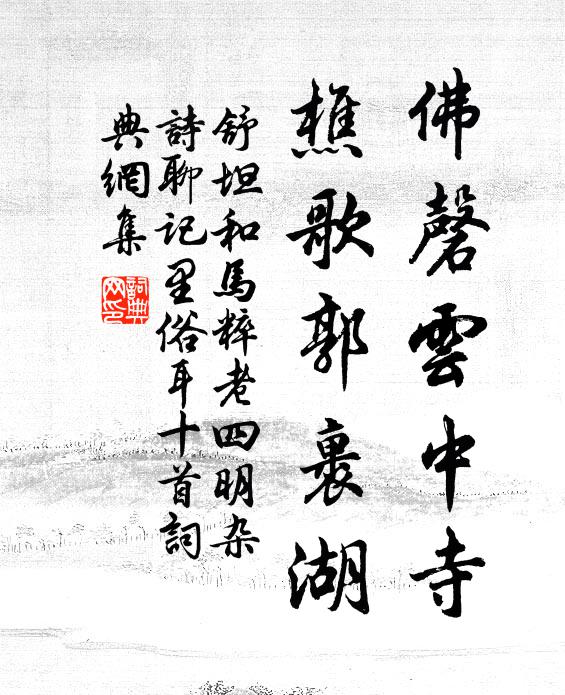 佛磬雲中寺
樵歌郭裹湖
舒坦和馬粹老四明杂
詩聊記里俗耳十首詞
典網集
詞典
网印